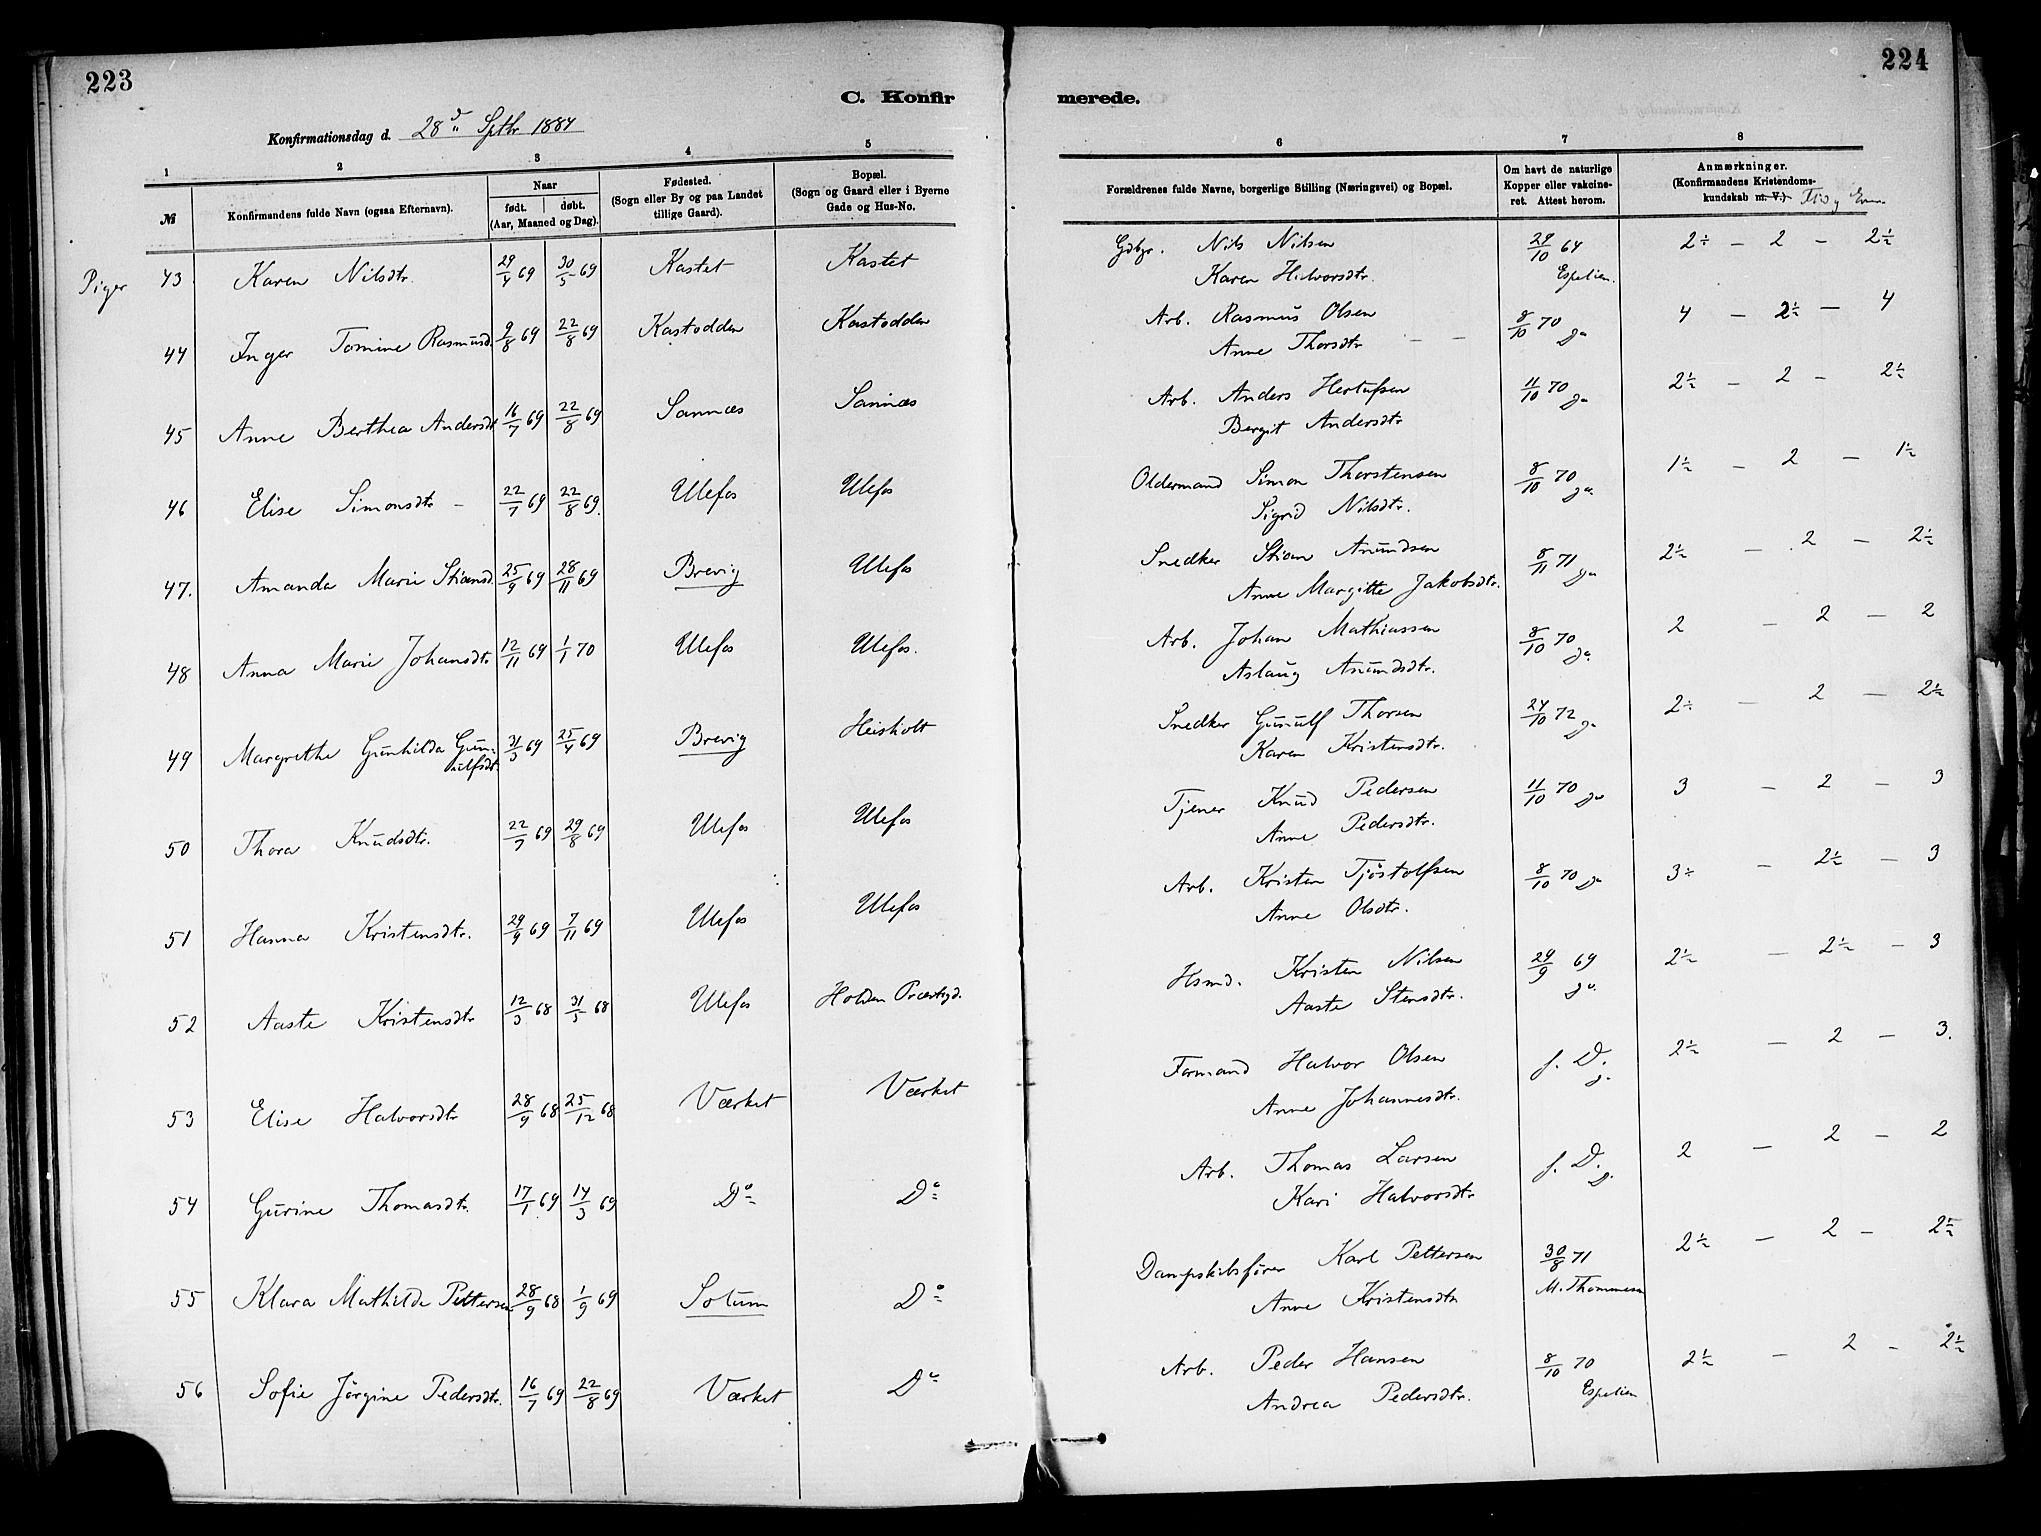 223
224
C. Konfir
merede.
Konfirmationsdag d. 28d Sptbr 1884
1 2 3 4 5 6 7 8
№
Konfirmandens fulde Navn (ogsaa Efternavn).
Naar
født. døbt.
(Aar, Maaned og Dag).
Fødested.
(Sogn eller By og paa Landet
tillige Gaard).
Bopæl.
(Sogn og Gaard eller i Byerne
Gade og Hus-No.
Forældrenes fulde Navne, borgerlige Stilling (Næringsvei) og Bopæl.
Om havt de naturlige
Kopper eller vakcine-
ret. Attest herom.
Anmærkninger.
(Konfirmandens Kristendoms-
kundskab m. V.) Flid og
Piger 43 Karen Nilsdtr. 29/4 69 30/5 69 Kastet Kastet Gdbgr. Nils Nilsen 29/10 64 2÷ — 2 — 2½
Karen Halvorsdtr. Espelien.
44 Inger Tomine Rasmusd. 9/8 69 22/8 69 Kastodden Kastodden Arb. Rasmus Olsen 8/10 70 do 4 — 2½ — 4
Anne Thorsdtr — —
45 Anne Berthea Andersdt 16/7 69 22/8 69 Sannæs Sannæs Arb. Anders Hertufsen 11/10 70 do 2½ — 2 — 2½
Bergit Andersdtr
46 Elise Simonsdtr — 22/7 69 22/8 69. Ulefos Ulefos Oldermand Simon Thorstensen 8/10 70 do. 1½ — 2 — 1½
Sigrid Nilsdtr.
47. Amanda Marie Stiansd. 25/9 69 28/11 69 Brevig Ulefos Snedker Stian Amundsen 8/11 71 do 2½ — 2 — 2½
Anne Margitte Jakobsdtr.
48 Anna Marie Johansdtr 12/11 69 1/1 70 Ulefos Ulefos. Arb. Johan Mathiassen 8/10 70 do. 2 — 2 — 2
Aslaug Amundsdtr.
49 Margrethe Gunhilda Gun- 31/3 69 25/4 69 Brevig Heisholt Snedker Gunulf Thorsen 24/10 72 do 2÷ — 2 — 2½
ulfsdt. Karen Kristensdtr.
50 Thora Knudsdtr. 22/7 69 29/8 69 Ulefos Ulefos Tjener Knud Pedersen 11/10 70 do 3 — 2 — 3
Anne Pedersdtr.
51 Hanna Kristensdtr. 29/9 69 7/11 69 Ulefos Ulefos Arb. Kristen Tjøstolfsen 8/10 70 do 3÷ — 2½ — 3
Anne Olsdtr.
52 Aaste Kristensdtr 12/3 68 31/5 68 Ulefos Holden Præstgd. Hsmd. Kristen Nilsen 29/9 69 do. 2½ — 2½ — 3
Aaste Stensdtr.
53 Elise Halvorsdtr 28/9 68 25/12 68 Værket Værket Formand Halvor Olsen f. D. 2½ — 2 — 3.
Anne Johannesdtr.
54 Gurine Thomasdtr. 17/1 69 14/3 69 Do Do Arb. Thomas Larsen f. D. 2 — 2 — 2
Kari Halvorsdtr
55 Klara Mathilde Pettersen 28/9 68 1/9 69 Solum Do Dampskibsfører Karl Pettersen 30/8 71 2½ — 2 — 2½
Anne Kristensdtr M. Thommesen
56 Sofie Jørgine Pedersdtr. 16/7 69 22/8 69 Værket Do Arb. Peder Hansen 8/10 70 2½ — 2 - 2½
Andrea Pedersdtr. Espelien